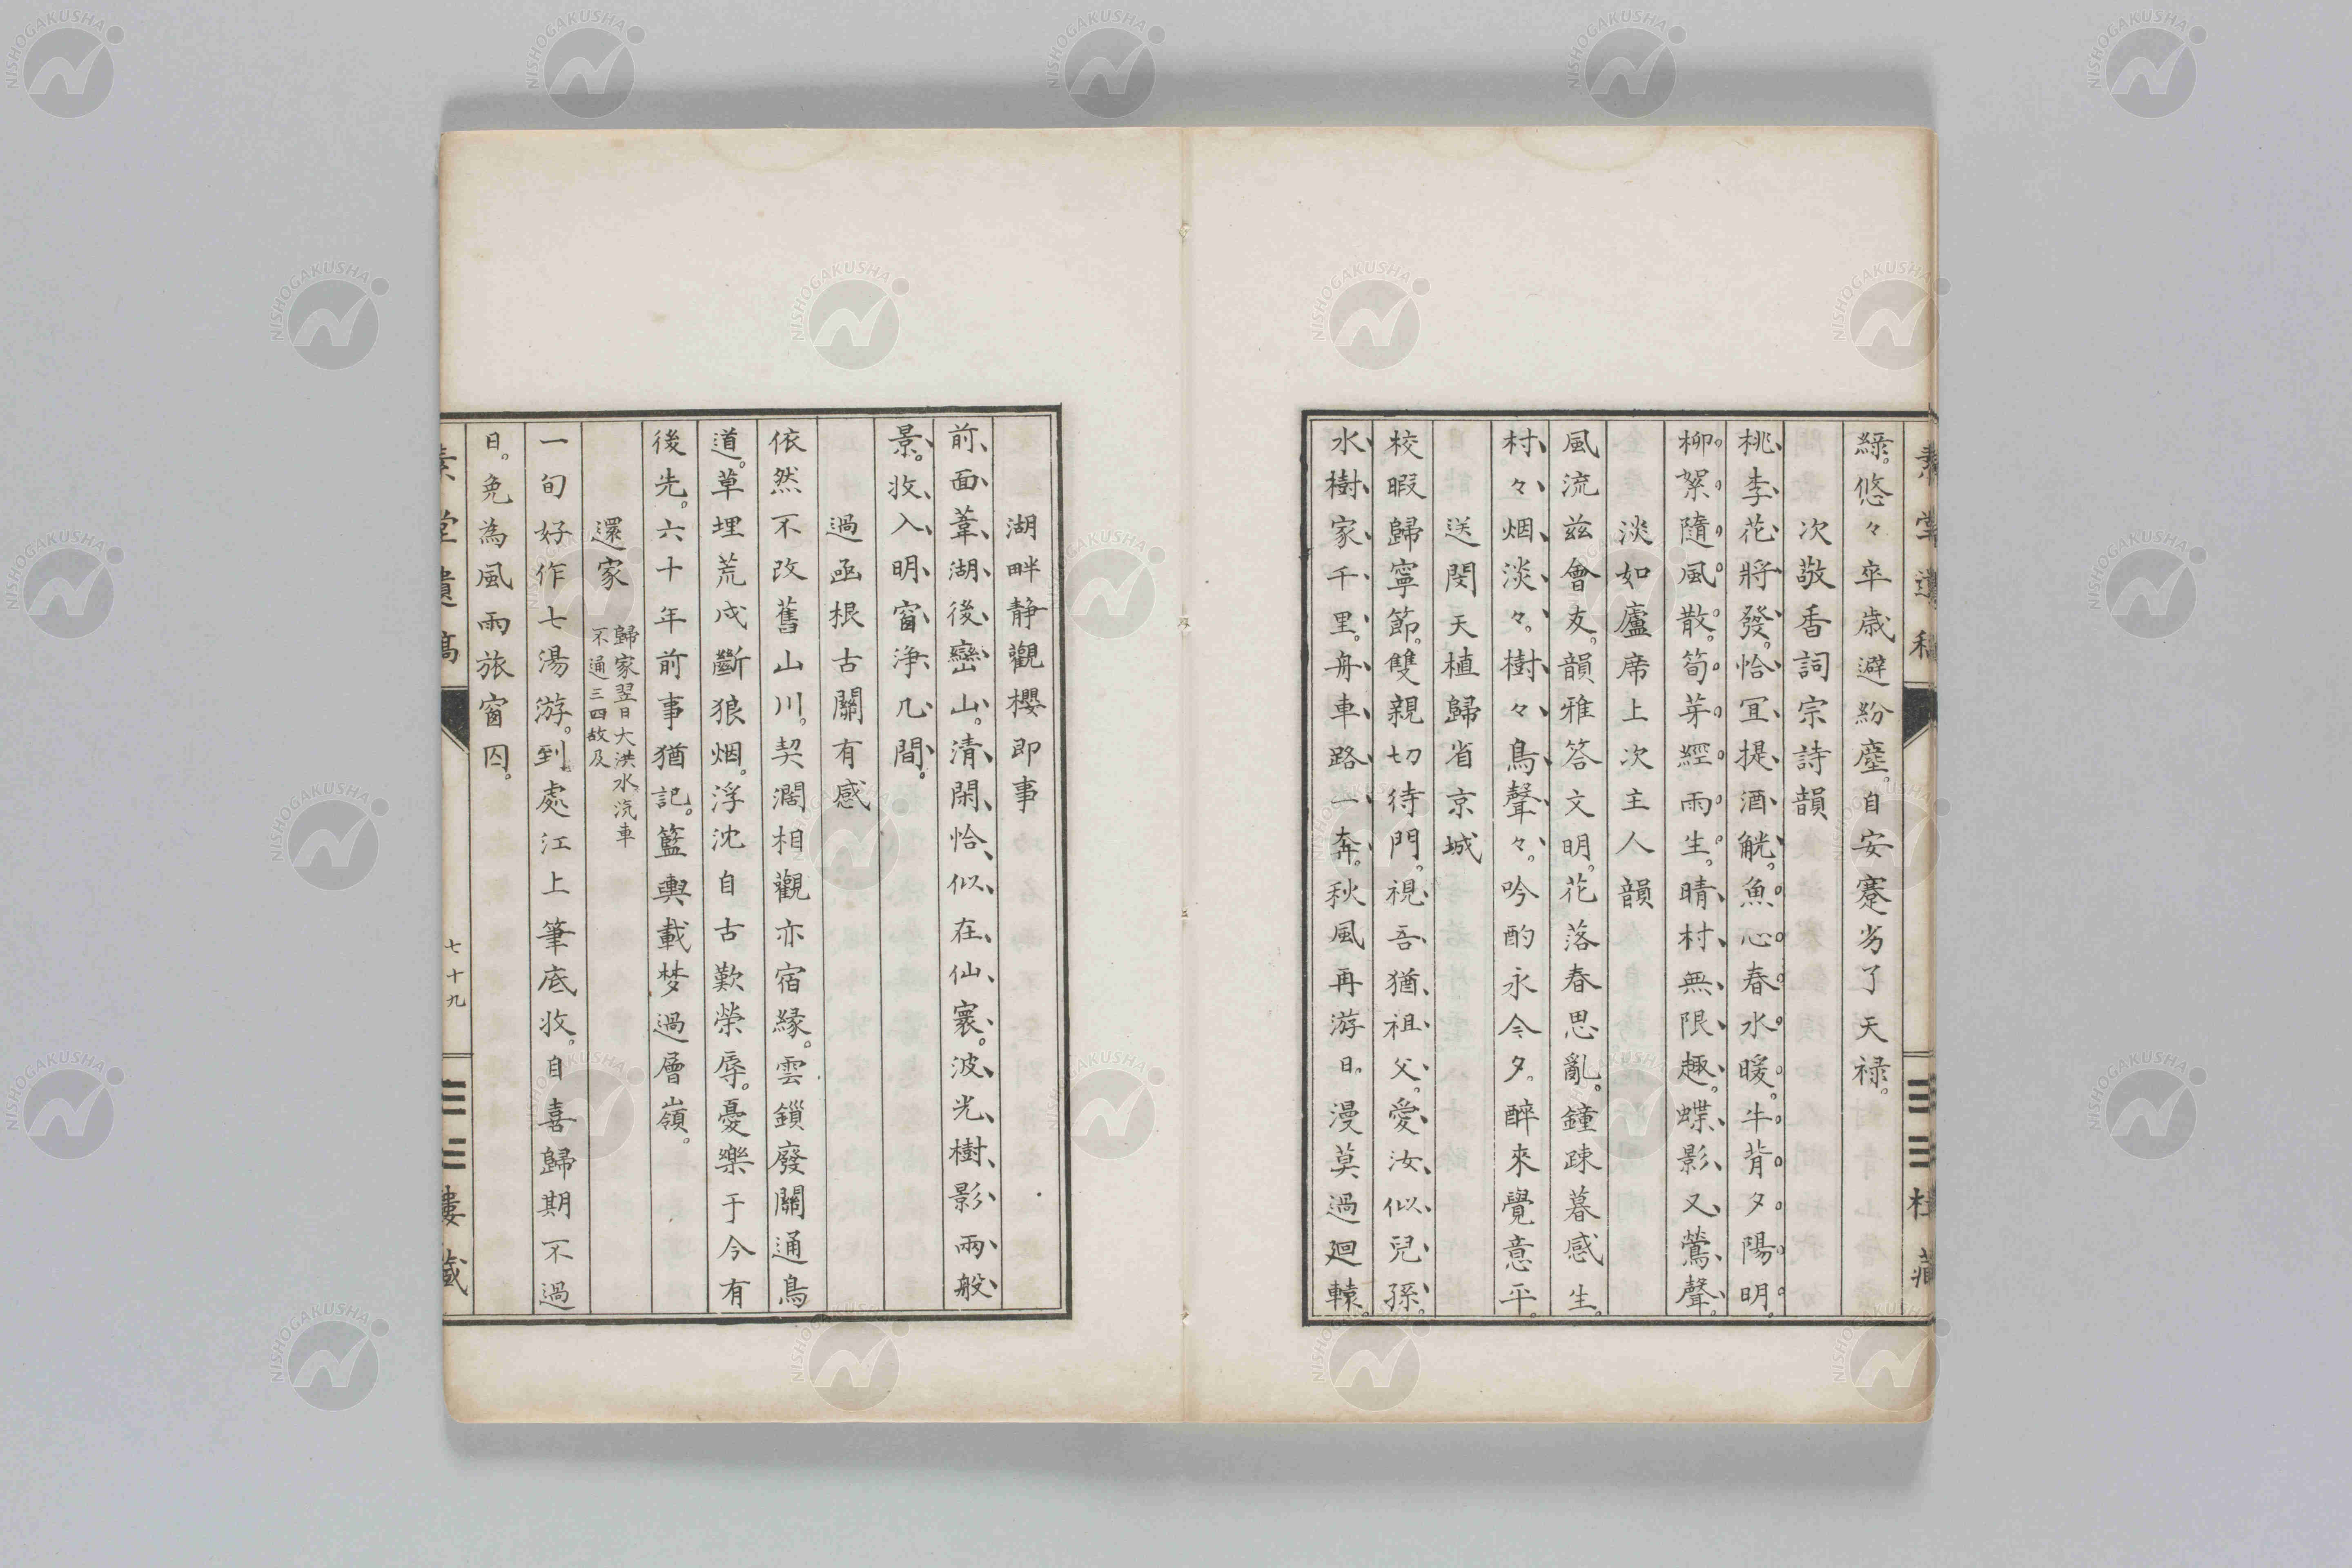 綠。悠々卒歳避紛塵。自安蹇劣了天祿。
次敬香詞宗詩韻
桃李花將發。恰宜提酒觥。魚心春水暖。牛背夕陽明。
柳絮隨風散。筍芽經雨生。晴村無限趣。蝶影又鶯聲。
淡如廬席上次主人韻
風流茲會友。韻雅答文明。花落春思亂。鐘疎暮感生。
村々烟淡々。樹々鳥聲々。吟酌永今夕。醉來覺意平。
送閔天植歸省京城
校暇歸寧節。雙親切待門。視吾猶祖父。愛汝似兒孫。
水樹家千里。舟車路一奔。秋風再游日。漫莫過廻轅。
湖畔静觀櫻即事
前面葦湖後巒山。清閑恰似在仙寰。波光樹影兩般
景。收入明窗浄几間。
過函根古關有感
依然不改舊山川。契濶相觀亦宿緣。雲鎖廢關通鳥
道。草埋荒戍斷狼烟。浮沈自古歎榮辱。憂樂于今有
後先。六十年前事猶記。籃輿載梦過層嶺。
還家 歸家翌日大洪水汽車
不通三四故及
一旬好作七湯游。到處江上筆底收。自喜歸期不過
日。免為風雨旅窗囚。
七十九
NISHOGAKUSHA